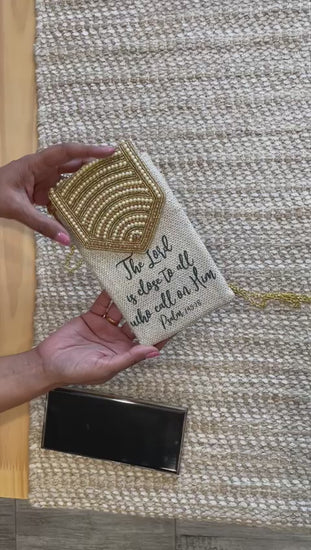 The Lord
is close to all
who call on Him
Psalm 145:18